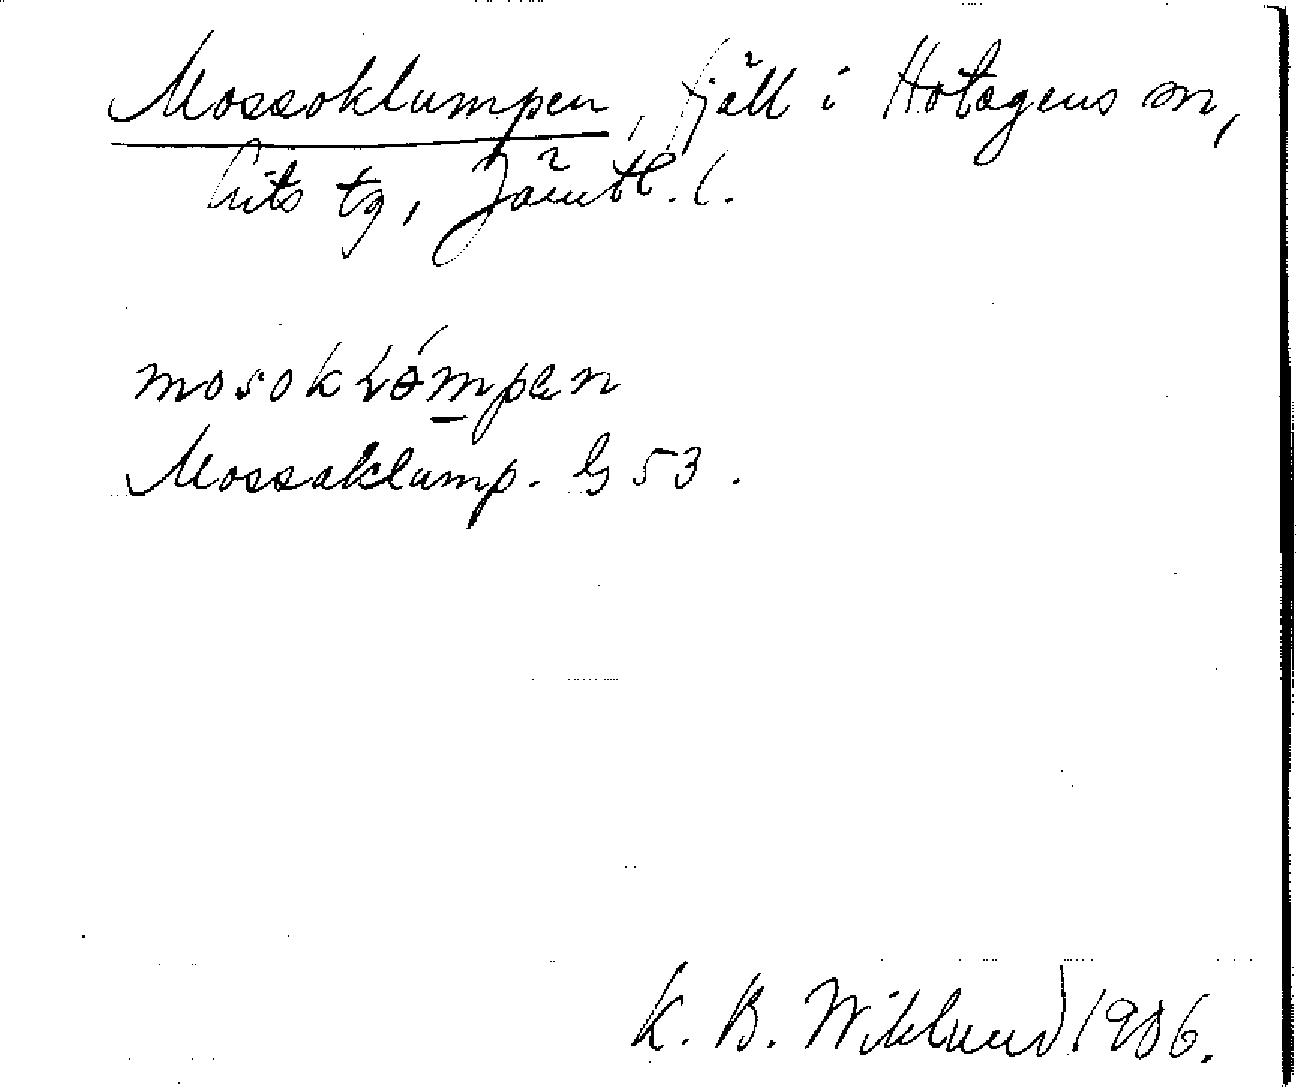 Mossoklumpen, fjäll i Hotagens sn,
Lits tg, Jämtl. l.
mosoklómpen
Mossaklump. G 53.
K. B. Wiklund 1906.